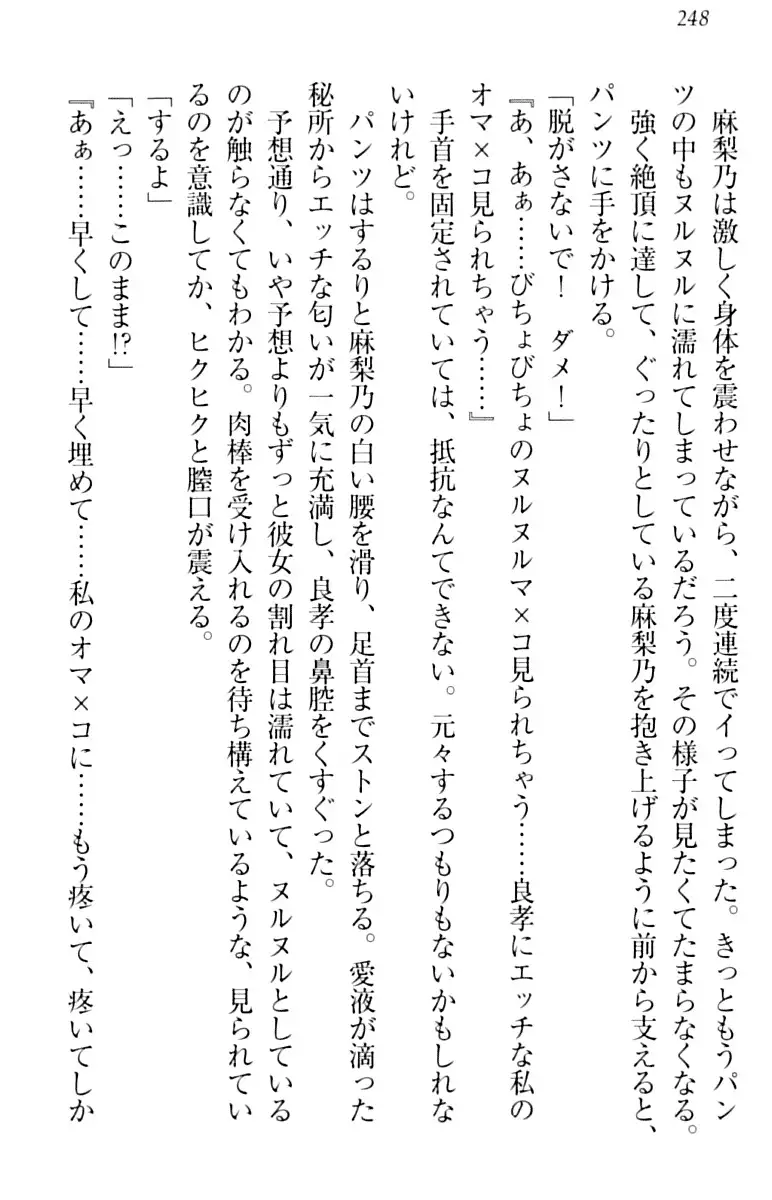 248
麻梨乃は激しく身体を震わせながら、二度連続でイってしまった。きっともうパン
ツの中もヌルヌルに濡れてしまっているだろう。その様子が見たくてたまらなくなる。
強く絶頂に達して、ぐったりとしている麻梨乃を抱き上げるように前から支えると、
パンツに手をかける。
「脱がさないで！　ダメ！」
『あ、あぁ……びちょびちょのヌルヌルマ×コ見られちゃう……良孝にエッチな私の
オマ×コ見られちゃう……』
手首を固定されていては、抵抗なんてできない。元々するつもりもないかもしれな
いけれど。
パンツはするりと麻梨乃の白い腰を滑り、足首までストンと落ちる。愛液が滴った
秘所からエッチな匂いが一気に充満し、良孝の鼻腔をくすぐった。
予想通り、いや予想よりもずっと彼女の割れ目は濡れていて、ヌルヌルとしている
のが触らなくてもわかる。肉棒を受け入れるのを待ち構えているような、見られてい
るのを意識してか、ヒクヒクと膣口が震える。
「するよ」
「えっ……このまま!?」
『あぁ……早くして……早く埋めて……私のオマ×コに……もう疼いて、疼いてしか